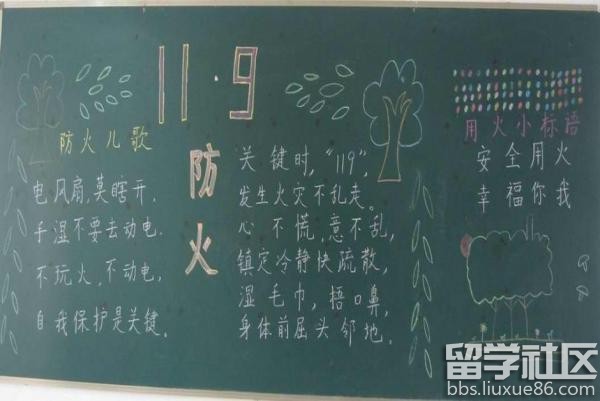 11·9
防火
防火儿歌
电风扇,莫瞎开.
手湿不要去动电.
不玩火.不动电,
自我保护是关键.
关键时,"119",
发生火灾不乱走。
心不慌,意不乱,
镇定冷静快疏散,
湿毛巾,捂口鼻,
身体前屈头邻地.
用火小标语
安全用火
幸福你我
留学社区
bbs.liuxue86.com